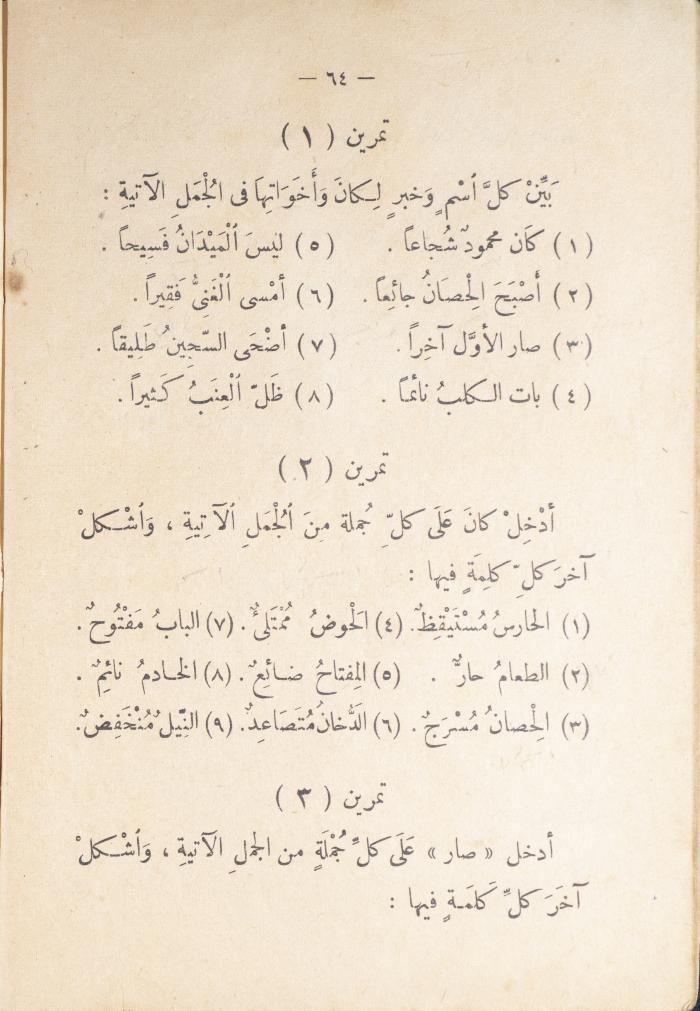 — ٦٤ —
تمرين ( ١ )
بَيِّنْ كلَّ ٱسْمٍ وَخبرٍ لِكانَ وَأَخَوَاتِهَا فى الْجُمَلِ الآتيةِ :
( ١ ) كَان محمودٌ شُجاعاً . ( ٥ ) ليسَ ٱلْمَيْدَانُ فَسِيحاً .
( ٢ ) أَصْبَحَ الْحِصَانُ جائِعاً . ( ٦ ) أمْسى ٱلْغَنِىُّ فَقِيراً .
( ٣ ) صار الأوَّل آخِراً . ( ٧ ) أضْحَى السّجِينُ طَلِيقاً .
( ٤ ) بات الكلبُ نائمًا . ( ٨ ) ظَلّ ٱلْعِنَبُ كَثيراً .
تمرين ( ٢ )
أدْخِلْ كانَ عَلَى كلِّ جُملة مِنَ ٱلْجُمَلِ ٱلْآتِيَةِ ، وَٱشْكلْ
آخرَ كلِّ كلِمَةٍ فيها :
(١) الحارسُ مُسْتَيْقِظٌ . (٤) الْحَوضُ مُمْتَلِىٌٔ . (٧) البابُ مَفْتُوحٌ .
(٢) الطعامُ حارٌّ . (٥) المِفتاحُ ضائِعٌ . (٨) الخادمُ نائِمٌ .
(٣) الْحِصانُ مُسْرَجٌ . (٦) الدُّخانُ مُتَصَاعِدٌ . (٩) النِّيلُ مُنْخَفِضٌ .
تمرين ( ٣ )
أدخل « صار » عَلَى كلِّ جُمْلَةٍ من الجملِ الآتيةِ ، وَٱشْكلْ
آخَرَ كلِّ كَلَمَةٍ فيها :